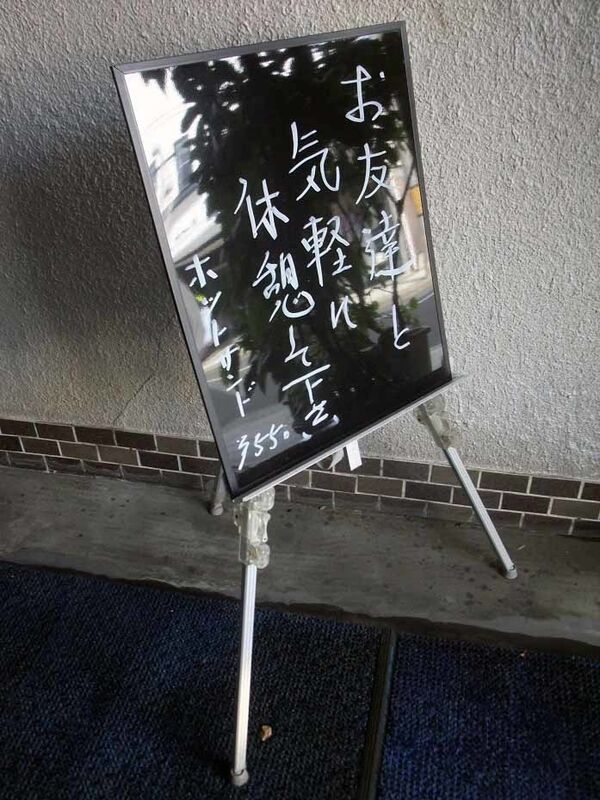 お友達と
気軽に
休憩して下さい
ホットサンド ¥550